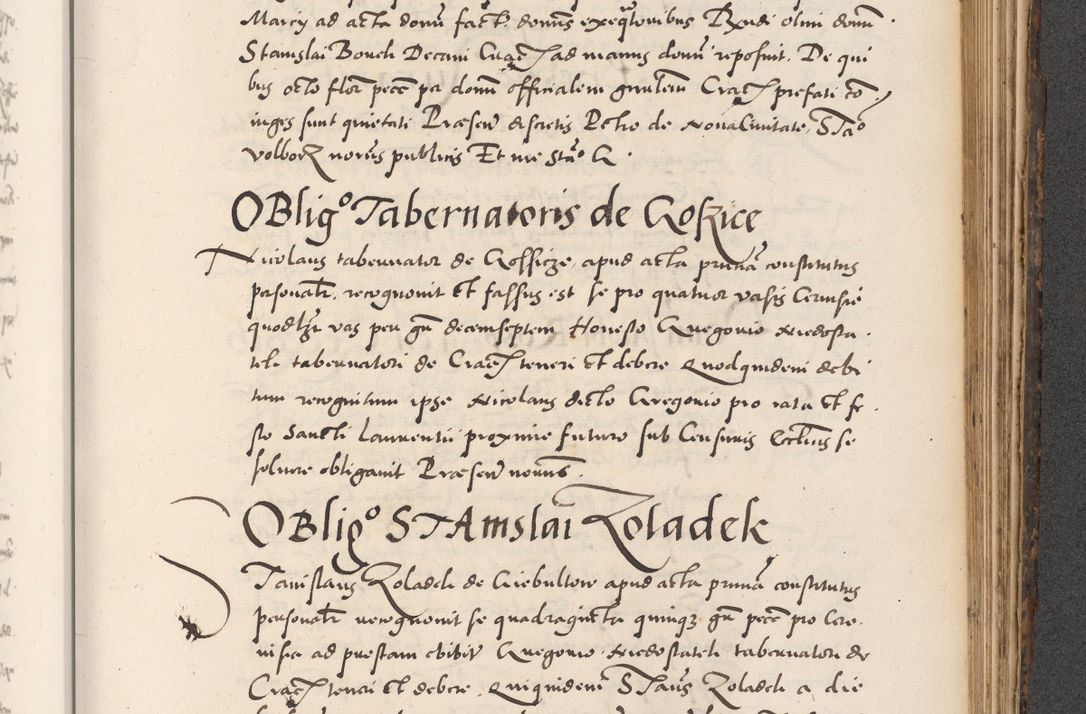 Marcÿ ad acta dom̄ fact. domīs exeq̄utoribus Rndi olim domī
Stanislai Boreck Decani Crac̄ ad manus domī reposuit. De qui
bus octo floř pecc̄ per domī officialem gnalem̄ Crac̄ prefati cō
iuges sunt quietati Præsenť discretis Petro de Novacivitate, STa⁰
volborz noriis publicis Et me Sta⁰ G.
OBlig⁰ Tabernatoris de Goszice
Nicolaus tabernator de Gossicze, apud acta pnūa constitutus
personalř. recognovit et fassus est se pro quatuor vasis Cervisie
quodlz vas per gř decemseptem Honesto Gregorio Niedosta.
tek tabernatori de Crac̄ teneri et debere Quodquidem debi
tum recognitum ipse Nicolaus dicto Gregorio pro rata et fe.
sto Sancti Laurentii proxime futuro sub Censuris Ecclīcis se
solvere obligavit Præsenť norīis.
OBlig⁰ STAnislai Zoladek
Stanislaus Zoladek de Giebultow apud acta pnūa constitutus
personalř recognovit se quadraginta quinqz gř pecc̄ pro Cere.
visia ad prestam Gregorio Niedostatek tabernatori de
Crac̄ teneri et debere. Quiquidem STaūs Zoladek a die